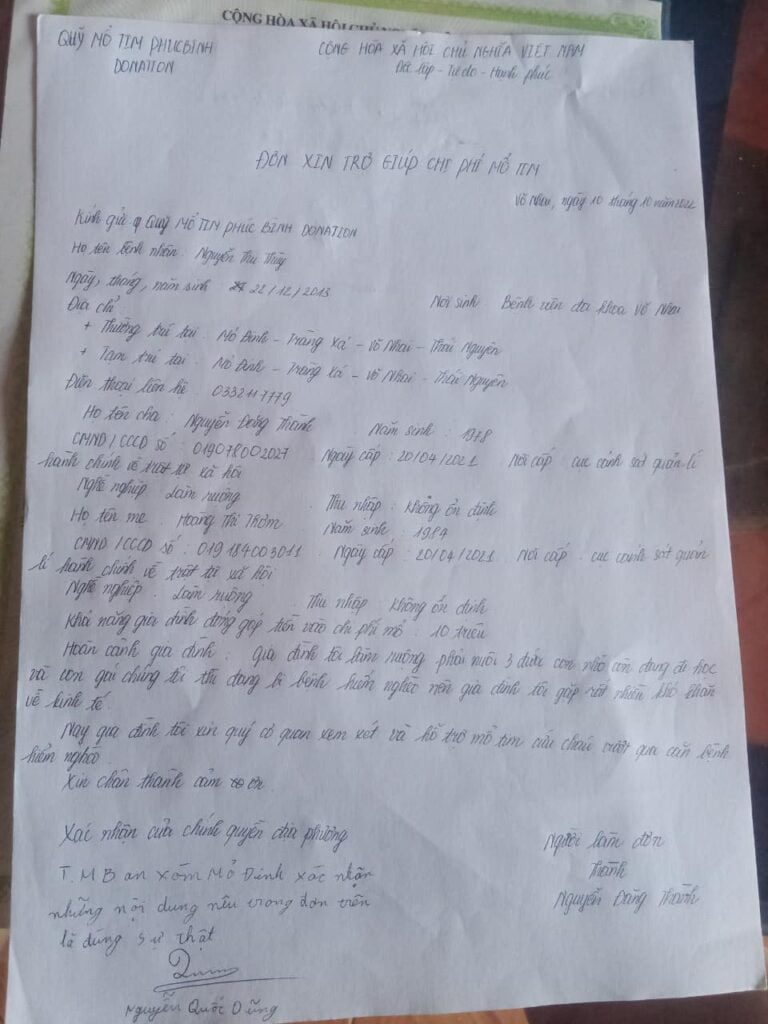 CỘNG HÒA XÃ HỘI CHỦ NGHĨA
QUỸ MỔ TIM PHUCBINH
DONATION
CỘNG HÒA XÃ HỘI CHỦ NGHĨA VIỆT NAM
Độc lập - Tự do - Hạnh phúc
ĐƠN XIN TRỢ GIÚP CHI PHÍ MỔ TIM
Võ Nhai, ngày 10 tháng 10 năm 2022
Kính gửi Quỹ MỔ TIM PHÚC BINH DONATION
Họ tên bệnh nhân : Nguyễn Thu Thủy
Ngày, tháng, năm sinh 22/12/2013 Nơi sinh : Bệnh viện đa khoa Võ Nhai
Địa chỉ
+ Thường trú tại : Mỏ Đinh - Tràng Xá - Võ Nhai - Thái Nguyên
+ Tạm trú tại : Mỏ Đinh - Tràng Xá - Võ Nhai - Thái Nguyên
Điện thoại liên hệ : 0332117779
Họ tên cha : Nguyễn Đăng Thành Năm sinh : 1978
CMND/CCCD số : 019078002027 Ngày cấp : 20/04/2021 Nơi cấp : cục cảnh sát quản lí
hành chính về trật tự xã hội
Nghề nghiệp : Làm ruộng Thu nhập : Không ổn định
Họ tên mẹ : Hoàng Thị Thơm Năm sinh : 1984
CMND/CCCD số : 019184003011 Ngày cấp : 20/04/2021 Nơi cấp : cục cảnh sát quản
lí hành chính về trật tự xã hội
Nghề nghiệp : Làm ruộng Thu nhập : Không ổn định
Khả năng gia đình đóng góp tiền vào chi phí mổ : 10 triệu
Hoàn cảnh gia đình : gia đình tôi làm ruộng phải nuôi 3 đứa con nhỏ còn đang đi học
và con gái chúng tôi thì đang bị bệnh hiểm nghèo nên gia đình tôi gặp rất nhiều khó khăn
về kinh tế.
Nay gia đình tôi xin quý cơ quan xem xét và hỗ trợ mổ tim cứu cháu vượt qua căn bệnh
hiểm nghèo.
Xin chân thành cảm ơn
Xác nhận của chính quyền địa phương
Người làm đơn
Thành
Nguyễn Đăng Thành
T.M Ban xóm Mỏ Đinh xác nhận
những nội dung nêu trong đơn trên
là đúng sự thật
Nguyễn Quốc Dũng